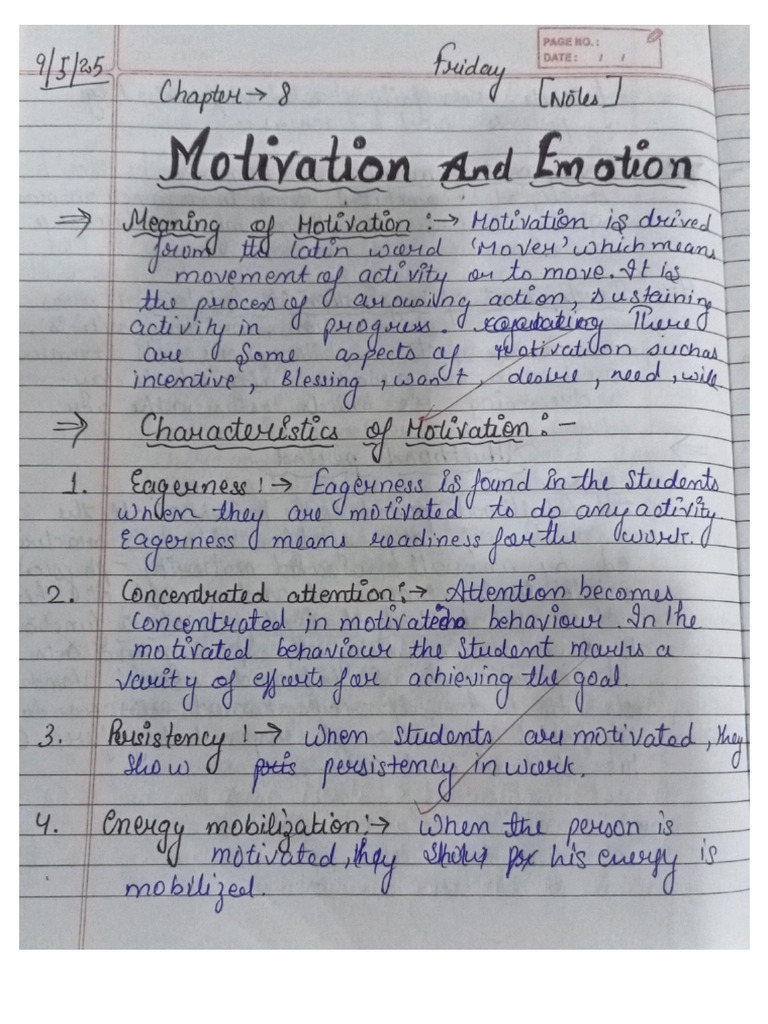 9/5/25
Friday
PAGE NO.:
DATE: / /
Chapter → 8 [Notes]
Motivation And Emotion
⇒ Meaning of Motivation :→ Motivation is drived
from the latin word 'Mover' which means
movement of activity or to move. It is
the process of arousing action, sustaining
activity in progress. There
are some aspects of motivation such as
incentive, Blessing, want, desire, need, will
⇒ Characteristics of Motivation :-
1. Eagerness :→ Eagerness is found in the students
when they are motivated to do any activity.
Eagerness means readiness for the work.
2. Concentrated attention :→ Attention becomes
concentrated in motivated behaviour. In the
motivated behaviour the student marks a
varity of efforts for achieving the goal.
3. Persistency :→ when students are motivated, they
show persistency in work.
4. Energy mobilization :→ when the person is
motivated, his energy is
mobilized.